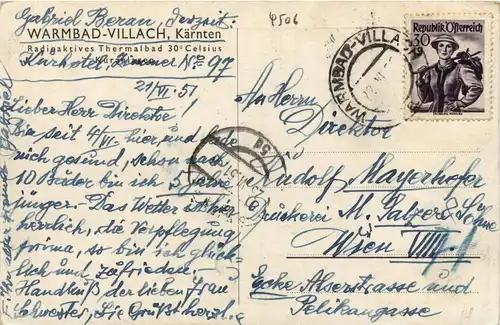 Gabriel Beran, derzeit.
WARMBAD-VILLACH, Kärnten
Radioaktives Thermalbad 30° Celsius
Kurhotel, Zimmer No 97
21/VI. 51
Lieber Herr Direktor!
Bin seit 4/VI. hier und
mich gesund, schon
10 Bäder bin ich Jahre
jünger. Das Wetter ist hier
herrlich, die Verpflegung
prima, so bin ich glück-
lich und zufrieden.
Handkuß der lieben Frau
Schwester, Sie Grüßt herzl.
Ihr alter Freund
4506
Republik Österreich
30
WARMBAD-VILLACH
An Herrn
Direktor
Rudolf Mayerhofer
Druckerei M. Salzer & Söhne
Wien VIII.
Ecke Alserstrasse und
Pelikangasse